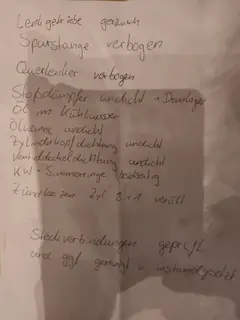 Lenkgetriebe geräusch
Spurstange verbogen
Querlenker verbogen
Stoßdämpfer undicht + Domlager
Öl im Kühlwasser
Ölwanne undicht
Zylinderkopfdichtung undicht
Ventildeckeldichtung undicht
KW + Simmerringe
Zündkerzen Zyl 3 + 1 verölt
Steckverbindungen geprüft
und ggf gereinigt + instandgesetzt